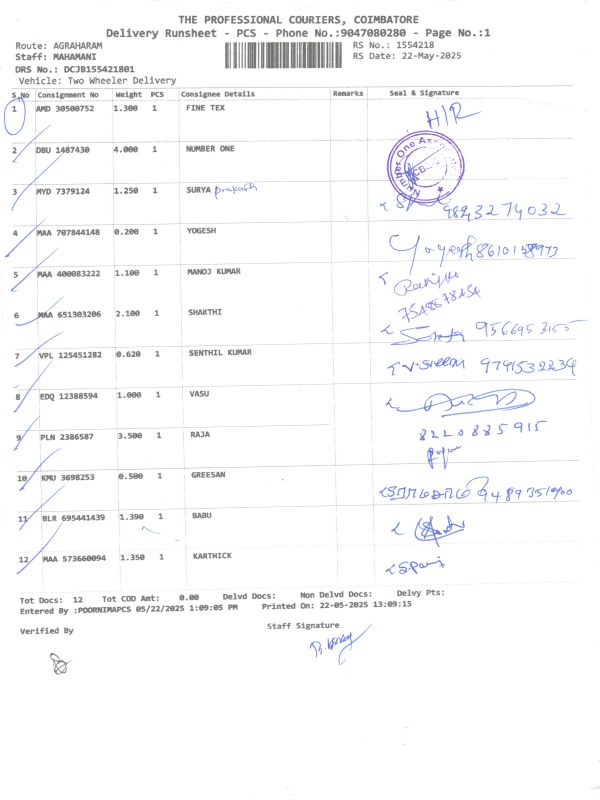 THE PROFESSIONAL COURIERS, COIMBATORE
Delivery Runsheet - PCS - Phone No.:9047080280 - Page No.:1
Route: AGRAHARAM
RS No.: 1554218
Staff: MAHAMANI
RS Date: 22-May-2025
DRS No.: DCJB155421801
Vehicle: Two Wheeler Delivery
S.No Consignment No Weight PCS Consignee Details Remarks Seal & Signature
1 AMD 30500752 1.300 1 FINE TEX H/R
2 DBU 1487430 4.000 1 NUMBER ONE
Number One
3 MYD 7379124 1.250 1 SURYA prakash
4 MAA 707844148 0.200 1 YOGESH Yogesh
5 MAA 400083222 1.100 1 MANOJ KUMAR
6 MAA 651303206 2.100 1 SHAKTHI
7 VPL 125451282 0.620 1 SENTHIL KUMAR 9791532234
8 EDQ 12388594 1.000 1 VASU
9 PLN 2386587 3.500 1 RAJA 8220885915
10 KMU 3698253 0.500 1 GREESAN
11 BLR 695441439 1.390 1 BABU
12 MAA 573660094 1.350 1 KARTHICK
Tot Docs: 12 Tot COD Amt: 0.00 Delvd Docs: Non Delvd Docs: Delvy Pts:
Entered By :POORNIMAPCS 05/22/2025 1:09:05 PM Printed On: 22-05-2025 13:09:15
Verified By
Staff Signature